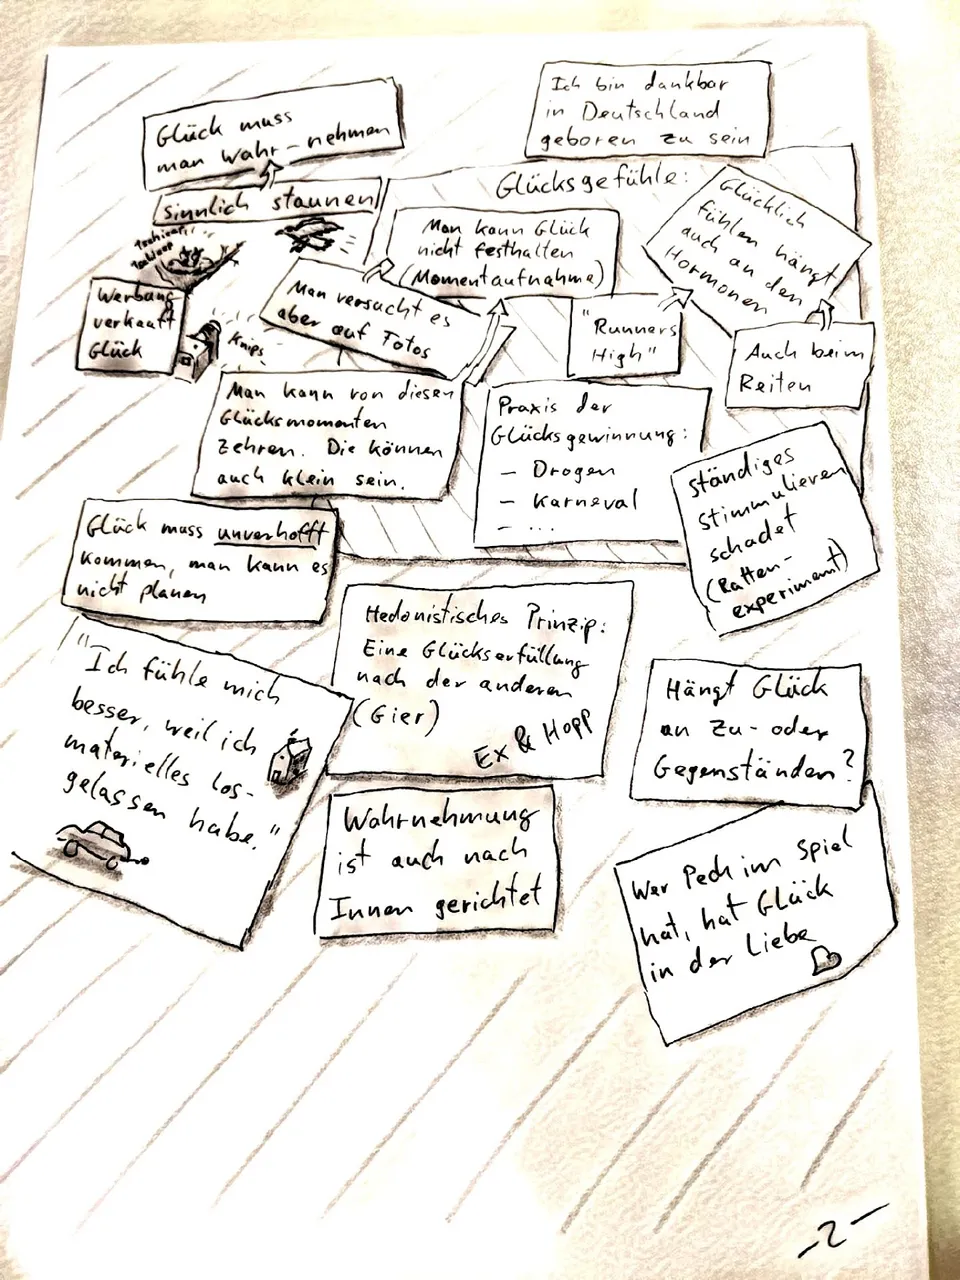 Glück muss
man wahr-nehmen
Ich bin dankbar
in Deutschland
geboren zu sein
sinnlich staunen
Glücksgefühle:
Man kann Glück
nicht festhalten
(Momentaufnahme)
Glücklich
fühlen hängt
auch an den
Hormonen
Werbung
verkauft
Glück
Knips
Man versucht es
aber auf Fotos
"Runners
High"
Auch beim
Reiten
Man kann von diesen
Glücksmomenten
zehren. Die können
auch klein sein.
Praxis der
Glücksgewinnung:
- Drogen
- Karneval
- ...
ständiges
stimmulieren
schadet
(Ratten-
experiment)
Glück muss unverhofft
kommen, man kann es
nicht planen
Hedonistisches Prinzip:
Eine Glückserfüllung
nach der anderen
(Gier)
Ex & Hopp
"Ich fühle mich
besser, weil ich
materielles los-
gelassen habe."
Hängt Glück
an Zu- oder
Gegenständen?
Wahrnehmung
ist auch nach
Innen gerichtet
Wer Pech im Spiel
hat, hat Glück
in der Liebe
-2-